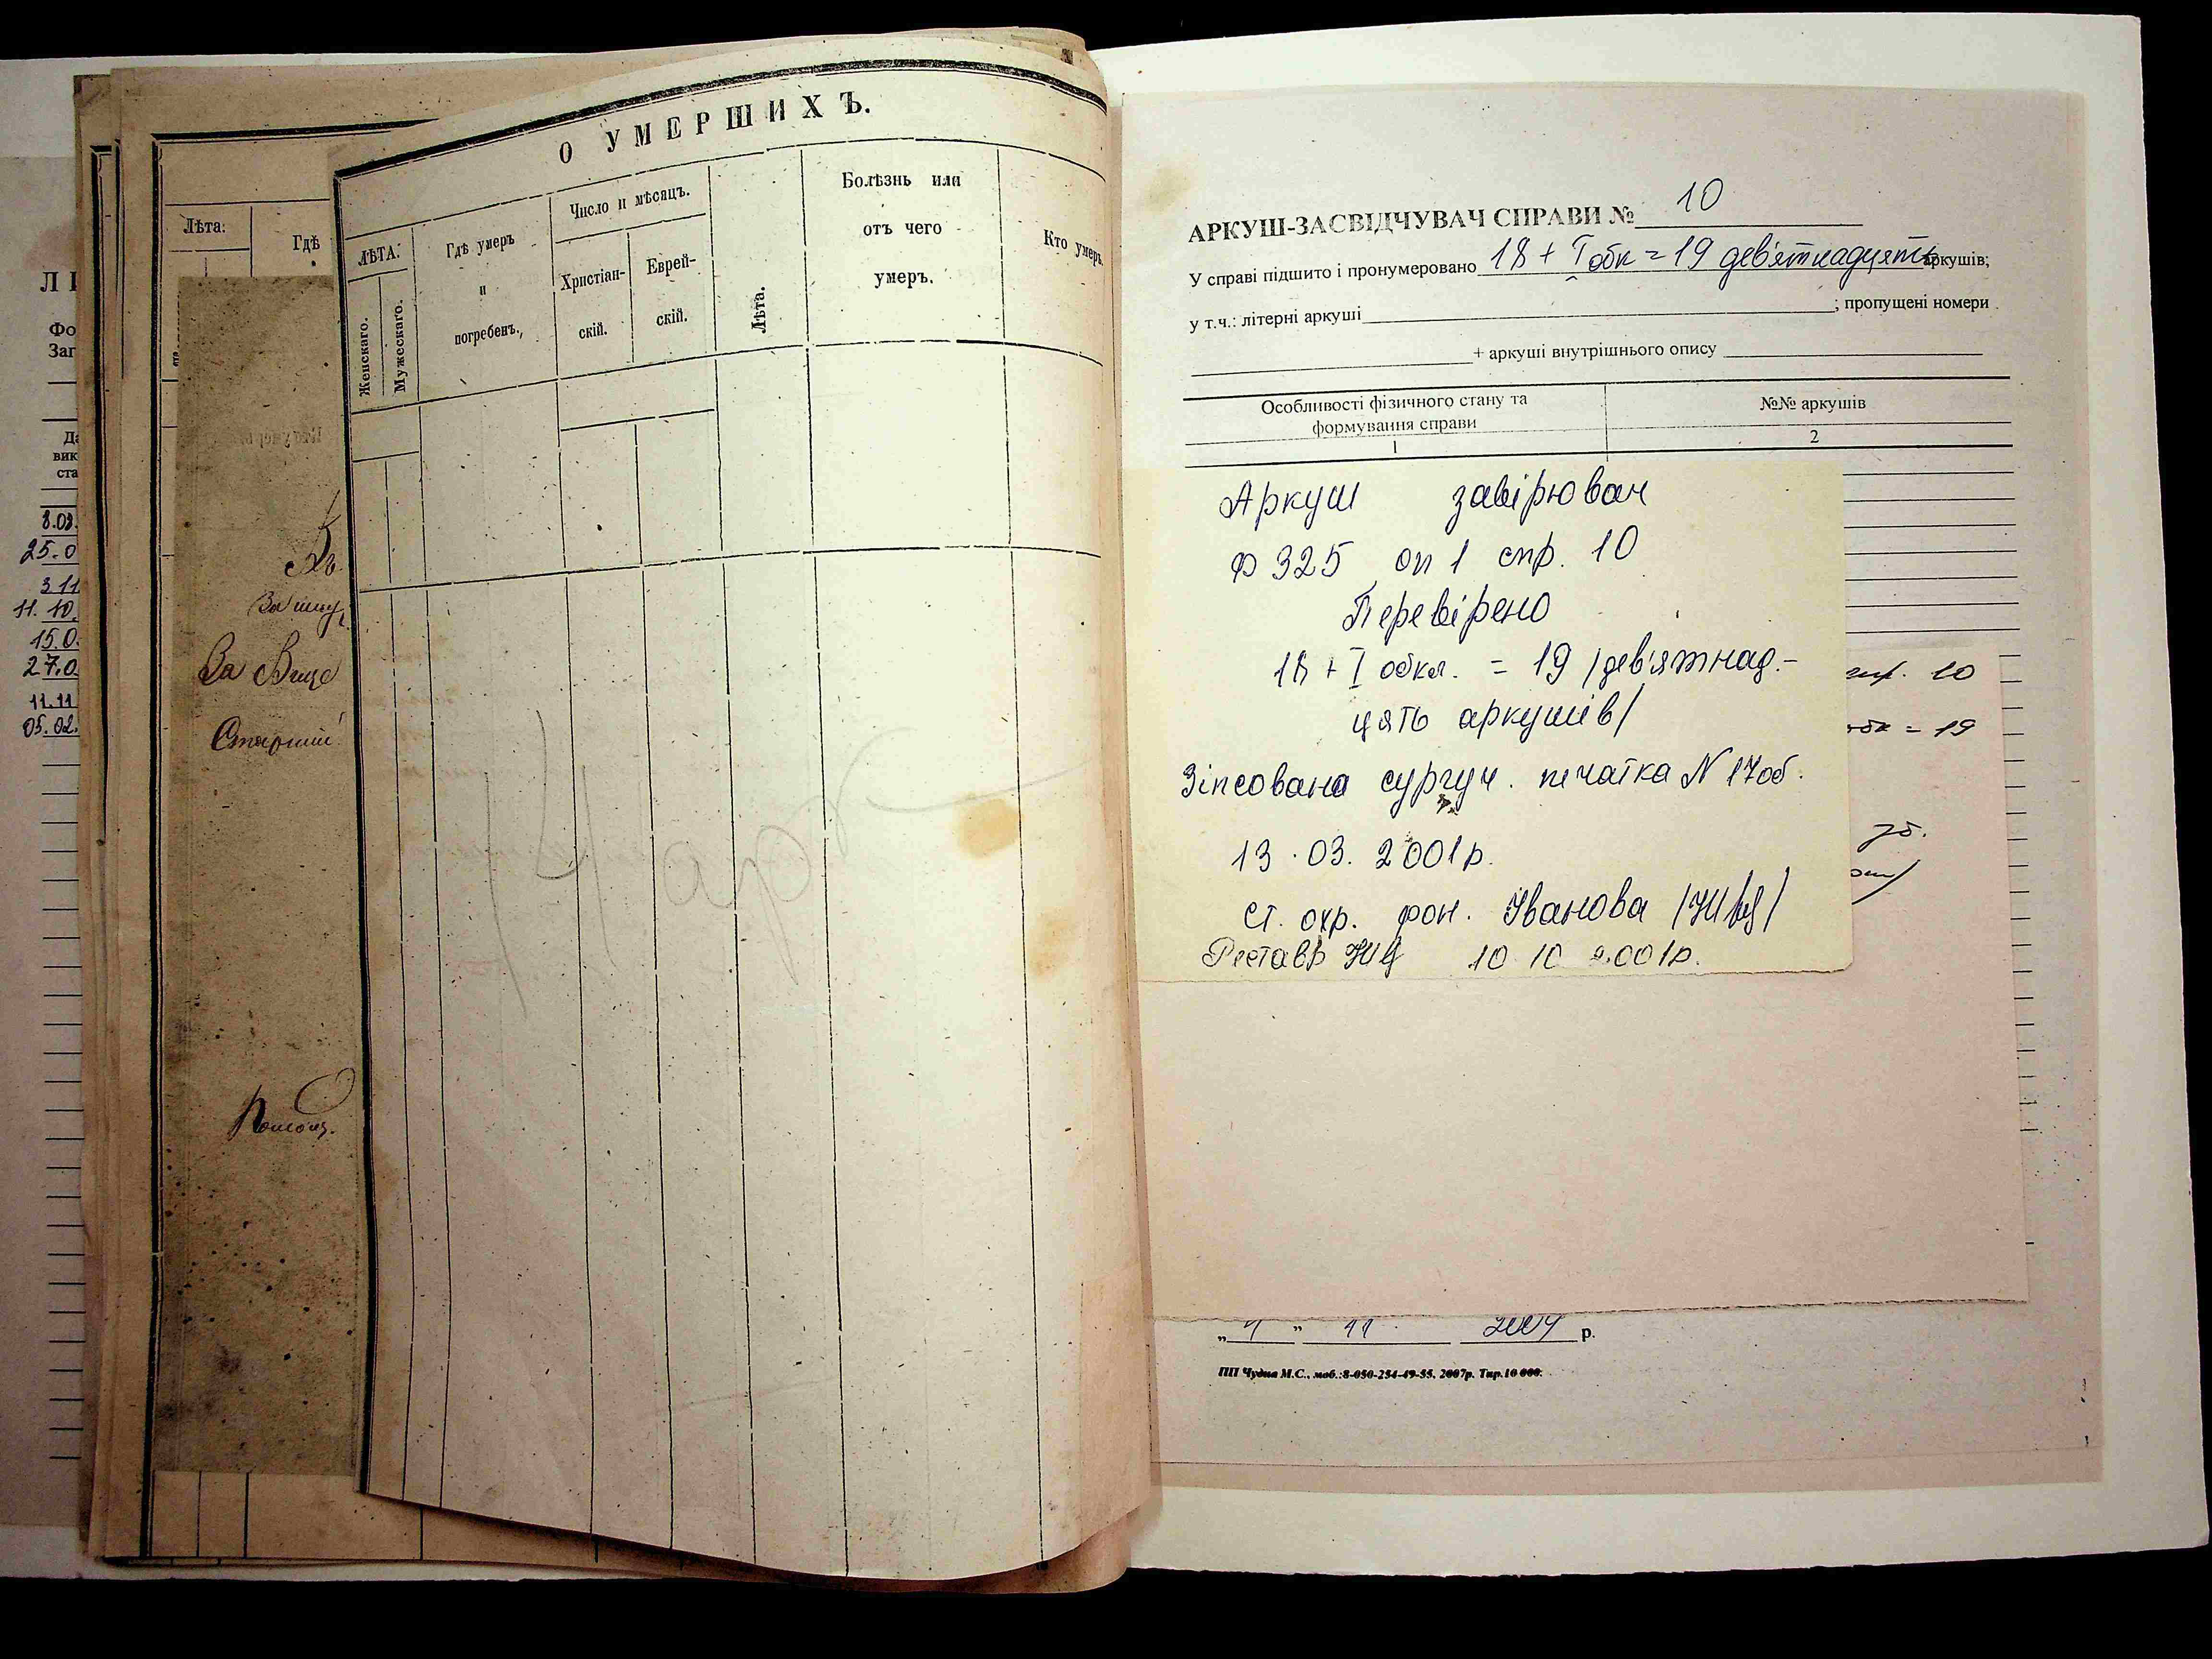 Л
Фо
Заг
Да
вик
ста
8.09.
25.0
3 11
11. 10.
15.0
27.0
11.11
05.02.
Лѣта:
Гдѣ
За
За Вице
Старшій
О УМЕРШИХЪ.
ЛѢТА:
Женскаго.
Мужескаго.
Гдѣ умеръ
и
погребенъ.,
Число и мѣсяцъ.
Христіан-
скій.
Еврей-
скій.
Лѣта.
Болѣзнь или
отъ чего
умеръ.
Кто умеръ.
АРКУШ-ЗАСВІДЧУВАЧ СПРАВИ № 10
У справі підшито і пронумеровано 18 + I обк = 19 дев'ятнадцять аркушів;
у т.ч.: літерні аркуші ; пропущені номери
+ аркуші внутрішнього опису
Особливості фізичного стану та
формування справи
№№ аркушів
1
2
Аркуш завірювач
Ф 325 оп 1 спр. 10
Перевірено
18 + I обкл. = 19 /дев'ятнад.-
цять аркушів/
Зіпсована сургуч. печатка N 17об.
13.03.2001р.
ст. охр. фон. Іванова
Реставр 10 10 2001р.
10
обк = 19
"4" 11 2009 р.
ПП Чудна М.С., моб.:8-050-254-49-55. 2007р. Тир.10 000.